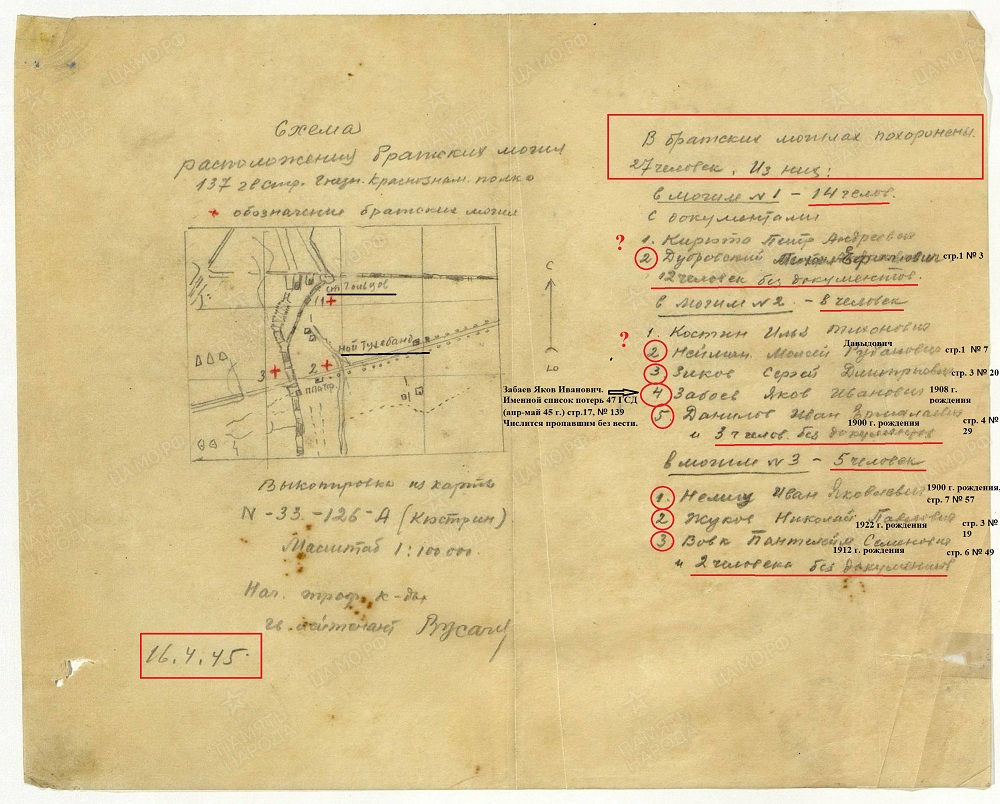 Схема
расположения братских могил
137 гв. стр. Гнезн. Краснознам. полка
+ обозначение братских могил
ст. Гольцов
1
Ной Тухебанд
3
2
п. платф.
С
Ю
Выкопировка из карты
N-33.-126-А (Кюстрин)
Масштаб 1:100 000.
Нач. троф. к-ды
гв. лейтенант
16.4.45.
В братских могилах похоронены
27 человек. Из них:
в могиле №1 - 14 челов.
с документами
? 1. Кирюта Петр Андреевич
2 Дубровский Ефимович стр.1 № 3
12 человек без документов.
в могиле №2 - 8 человек
? 1. Костин Илья Тихонович
Давыдович
2 Нейман Моисей стр.1 № 7
3 Зиков Сергей Дмитриевич стр. 3 № 20
4 Забоев Яков Иванович 1908 г. рождения
Забаев Яков Иванович.
Именной список потерь 47 ГСД
(апр-май 45 г.) стр.17, № 139
Числится пропавшим без вести.
5 Данилов Иван Ермолаевич стр. 4 № 29
1900 г. рождения
и 3 челов. без документов
в могиле №3 - 5 человек
1. Нелиц Иван Яковлевич 1900 г. рождения. стр. 7 № 57
2 Жуков Николай Павлович стр. 3 № 19
1922 г. рождения
3 Вовк Пантелейм. Семенович
1912 г. рождения стр. 6 № 49
и 2 человека без документов
ЦАМО.РФ
ПАМЯТЬ НАРОДА